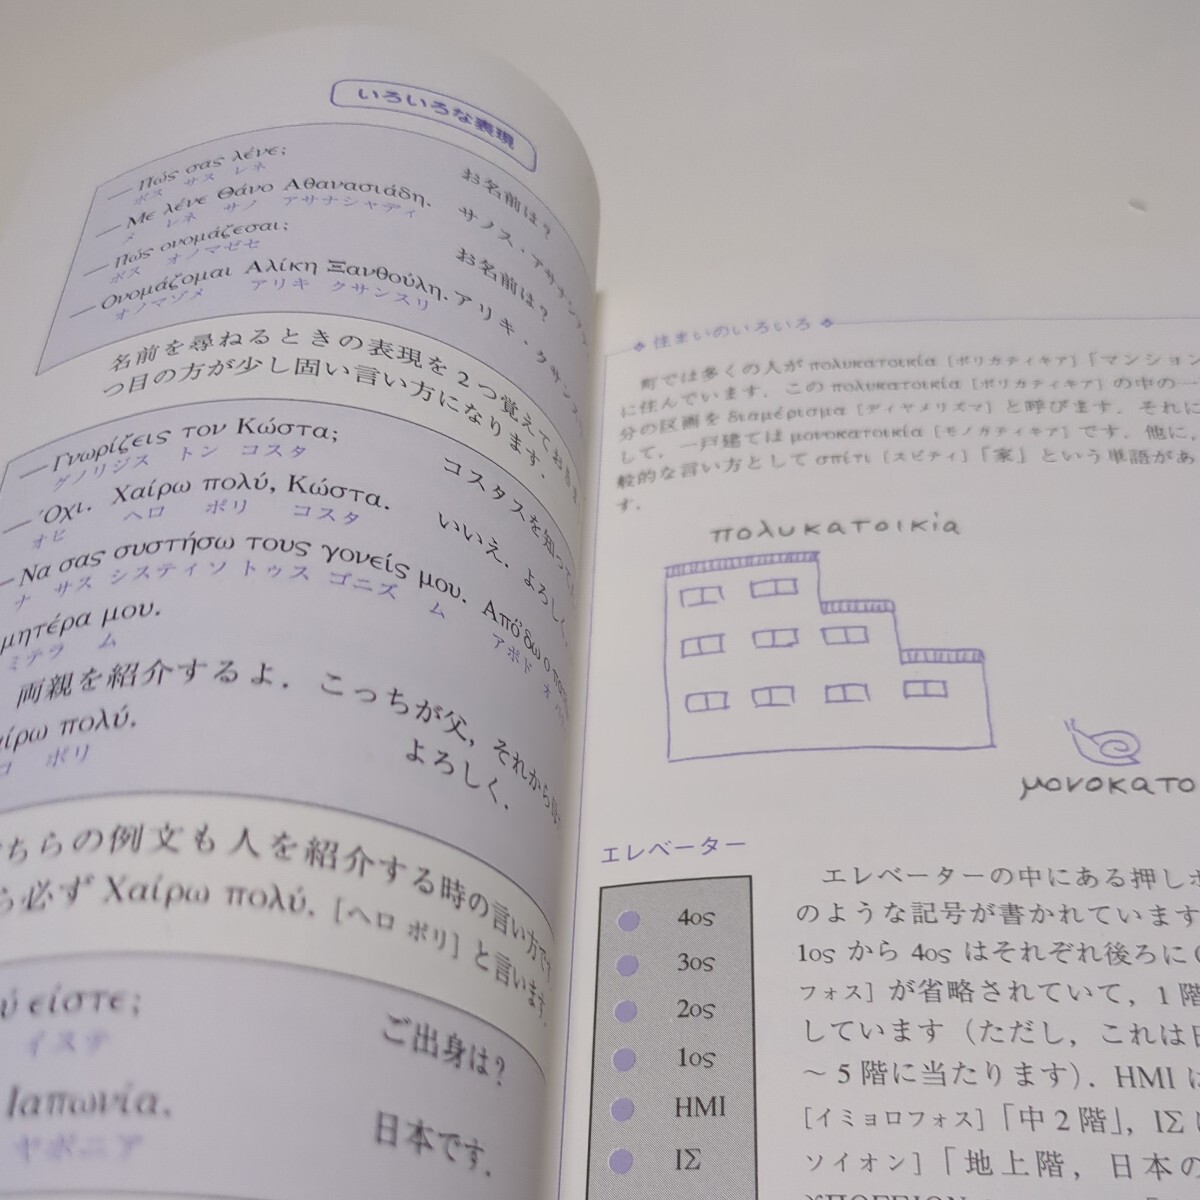 いろいろな表現
— Πώς σας λένε; お名前は？
ポス サス レネ
— Με λένε Θάνο Αθανασιάδη. サノス・アサナシ
メ レネ サノ アサナシャディ
— Πώς ονομάζεσαι; お名前は？
ポス オノマゼセ
— Ονομάζομαι Αλίκη Ξανθούλη. アリキ・クサン
オノマゾメ アリキ クサンスリ
名前を尋ねるときの表現を２つ覚えておき
つ目の方が少し固い言い方になります．
— Γνωρίζεις τον Κώστα; コスタスを知って
グノリジス トン コスタ
— Όχι. Χαίρω πολύ, Κώστα. いいえ．よろしく，
オヒ ヘロ ポリ コスタ
— Να σας συστήσω τους γονείς μου. Από'δω ο
ナ サス システィソ トゥス ゴニズ ム アポド オ
μητέρα μου.
ミテラ ム
両親を紹介するよ．こっちが父，それから
πολύ. よろしく．
ポリ
ちらの例文も人を紹介する時の言い方で
必ず Χαίρω πολύ. [ヘロ ポリ] と言います．
είστε; ご出身は？
イステ
Ιαπωνία. 日本です．
ヤポニア
住まいのいろいろ
町では多くの人が πολυκατοικία [ポリカティキア]「マンション
に住んでいます．この πολυκατοικία [ポリカティキア] の中の一
分の区画を διαμέρισμα [ディヤメリズマ] と呼びます．それに
して，一戸建ては μονοκατοικία [モノカティキア] です．他に，
般的な言い方として σπίτι [スピティ]「家」という単語があ
す．
πολυκατοικία
μονοκατο
エレベーター
4ος
3ος
2ος
1ος
ΗΜΙ
ΙΣ
エレベーターの中にある押しボ
のような記号が書かれています
1ος から 4ος はそれぞれ後ろに
フォス] が省略されていて，1 階
しています（ただし，これは日
～5 階に当たります）．ΗΜΙ は
[イミョロフォス]「中２階」，ΙΣ は
ソイオン]「地上階，日本の
ΥΠΟΓΕΙΟΝ